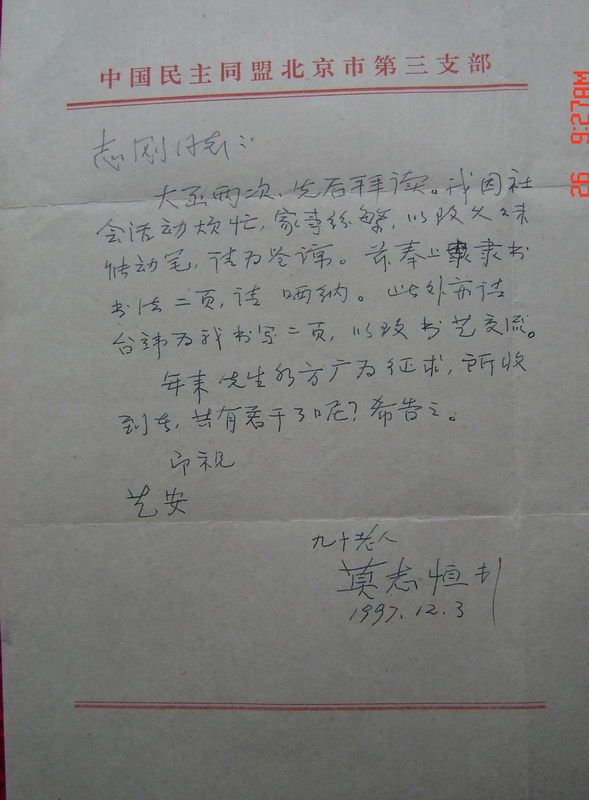 中国民主同盟北京市第三支部
志刚同志：
大函两次，先后拜读。我因社
会活动烦忙，家事纷繁，以致久未
能动笔，请为谅。兹奉上隶书
书法二页，请哂纳。此外亦请
台讳为我书写二页，以致书艺交流。
年来先生多方广为征求，所收
到者，共有若干了呢？希告之。
即祝
艺安
九十老人
莫志恒
1997.12.3
26 9:27AM